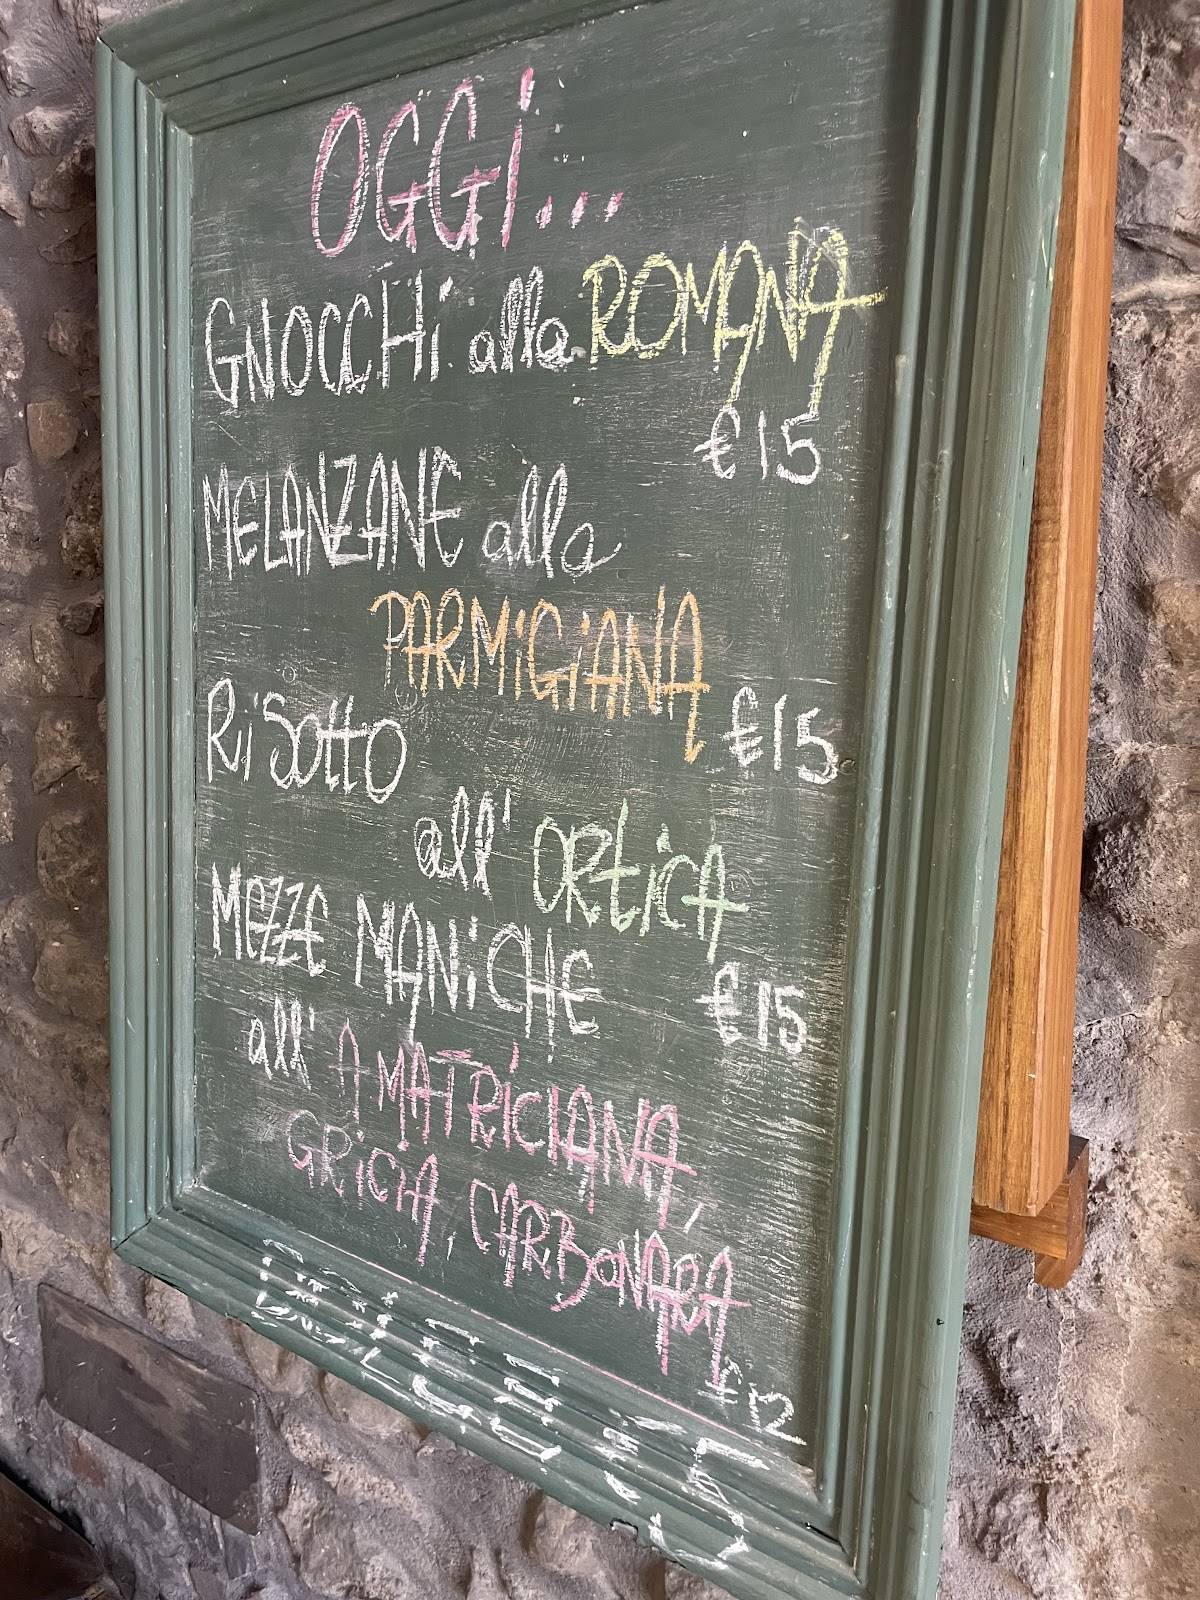 OGGi...
GNOCCHi alla ROMANA
€15
MELANZANE alla
PARMiGiANA
€15
RiSotto
all' ORtiCA
€15
MEZZE MANiCHE
all' AMATRiCIANA,
GRiCiA, CARBONARA
€12